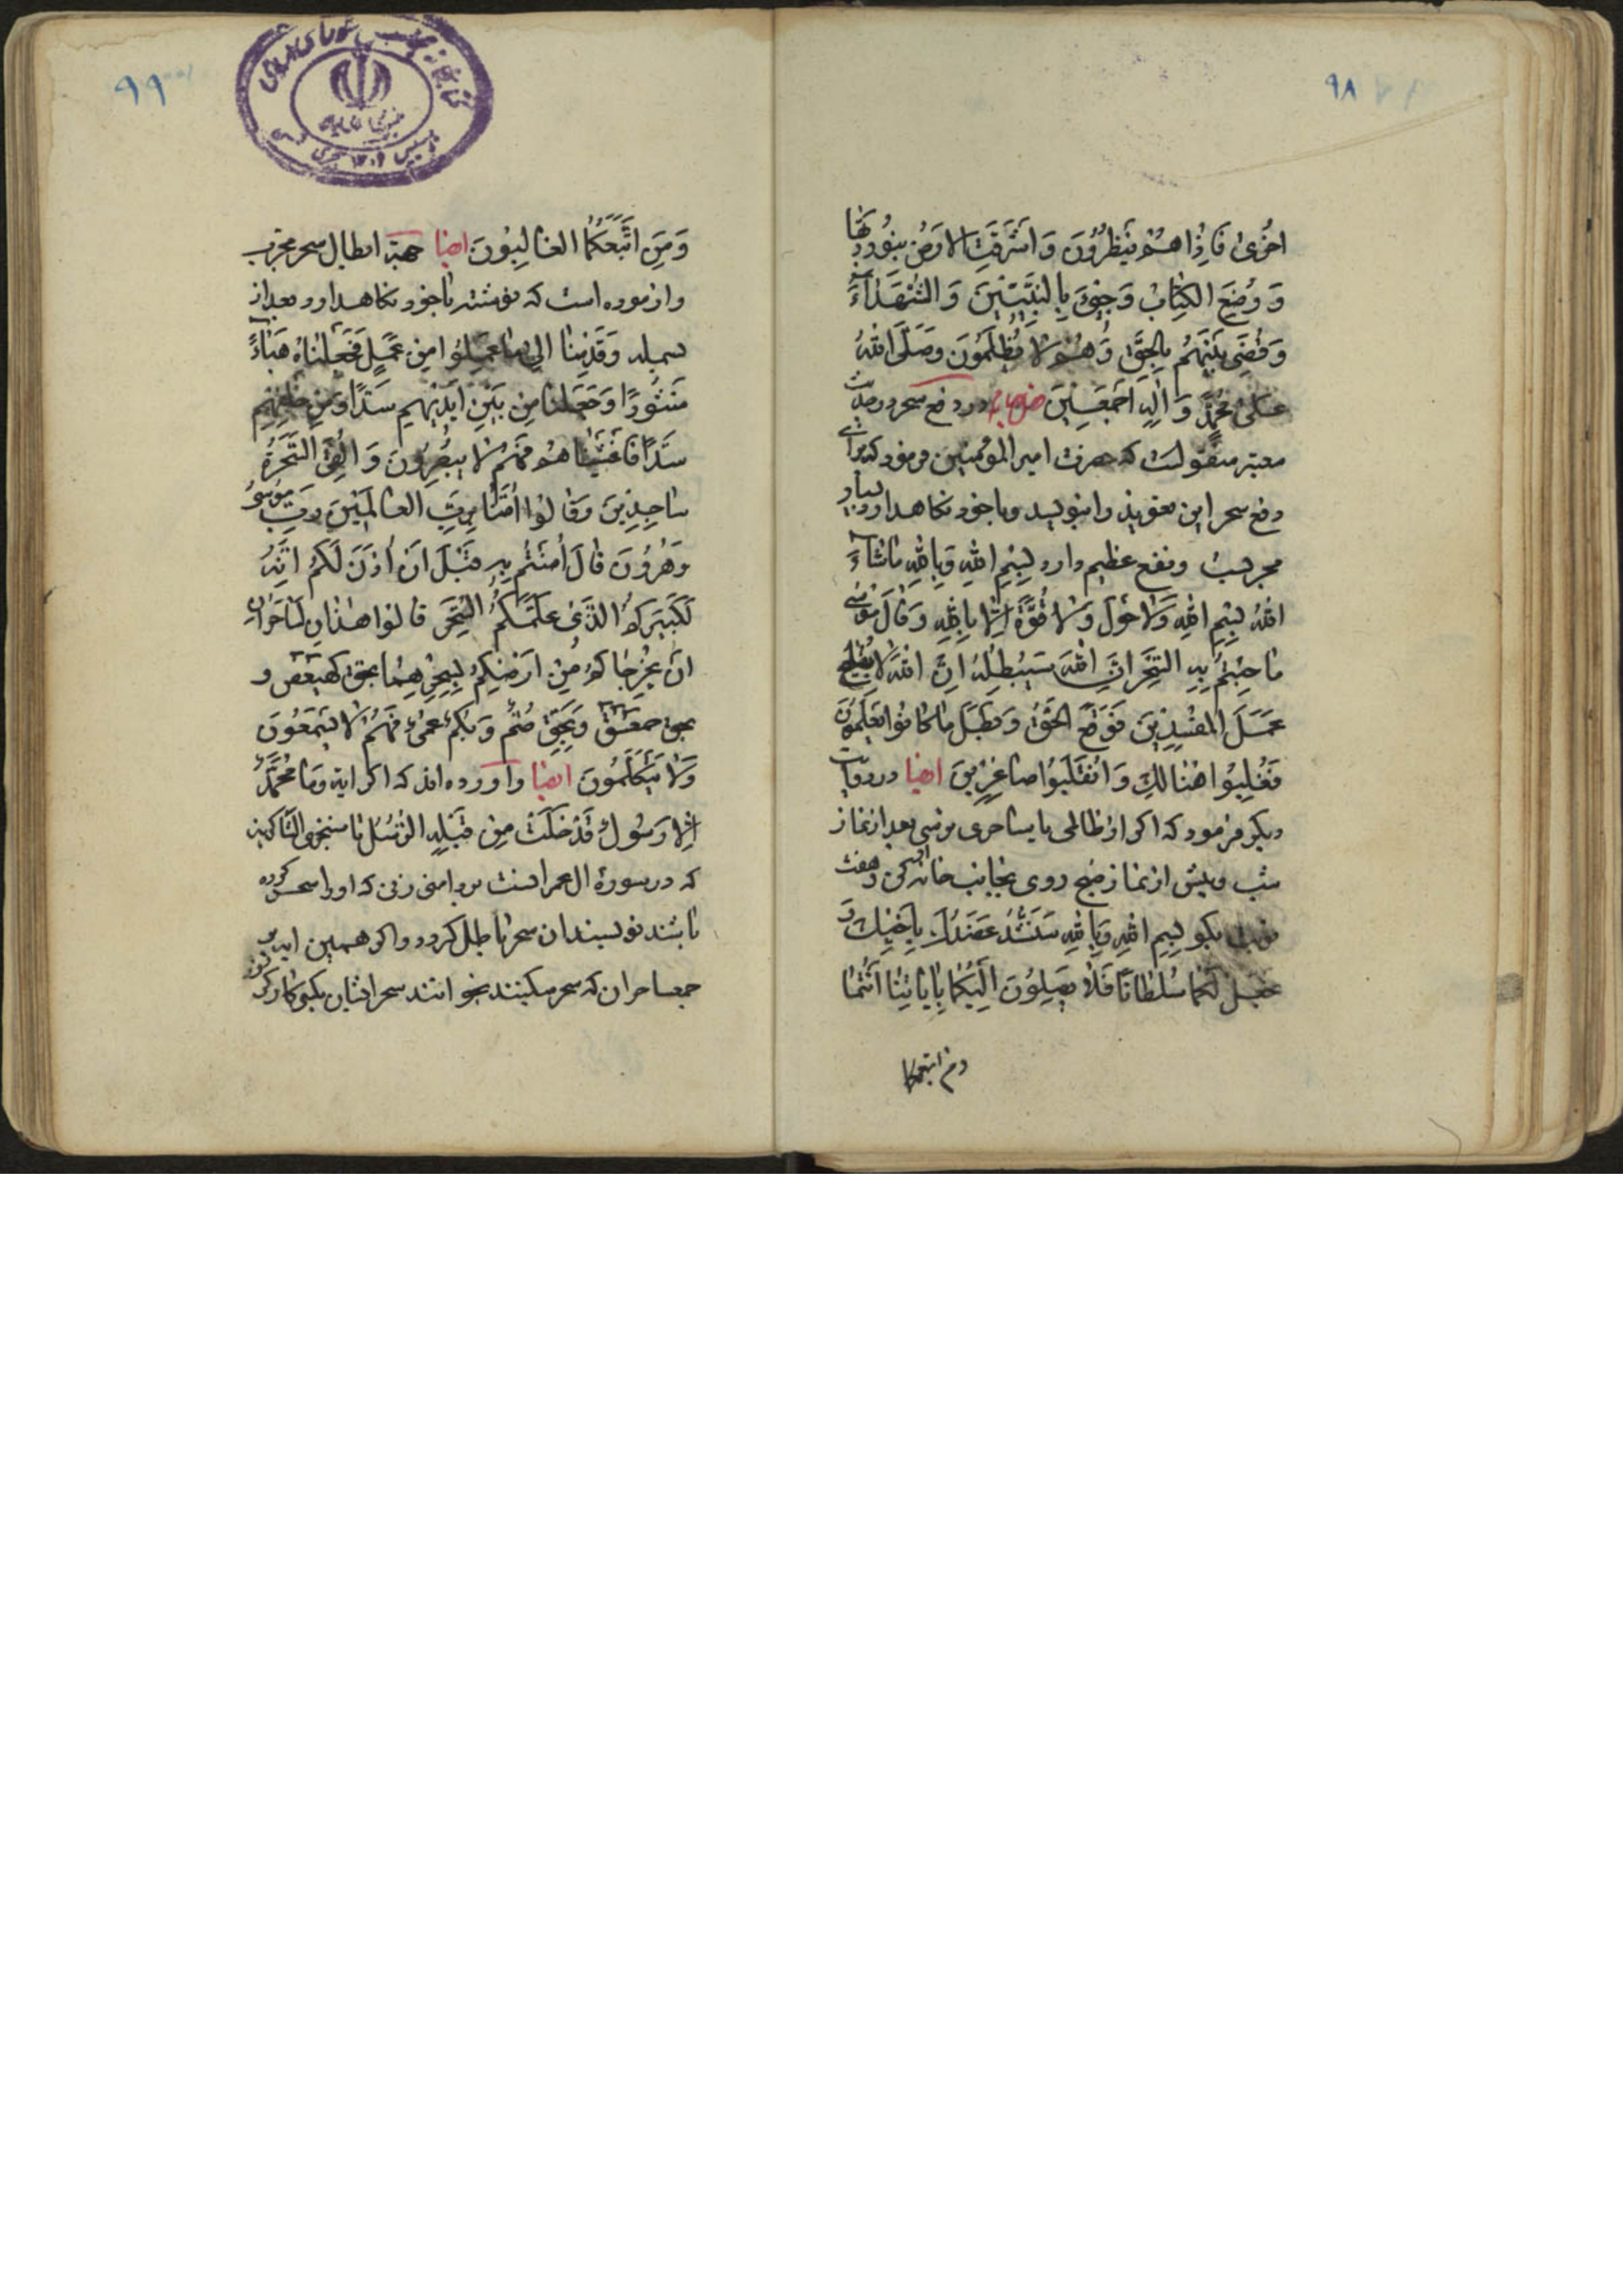 ۹۸
اُخْرىٰ فَاِذٰا هُمْ يَنْظُرُوُنَ وَ اَشْرَقَتِ الْاَرْضُ بِنُورِ رَبِّهٰا
وَ وُضِعَ الكِتٰابُ وَجِيئَ بِالنَّبِيّٖينَ وَ الشُّهَدٰاءَ
وَ قُضِىَ بَيْنَهُمْ بِالحَقِّ وَ هُمْ لٰا يُظْلَمُونَ وَصَلَّى اللهُ
عَلىٰ مُحَمَّدٍ وَ اٰلِهِ اَجْمَعٖينَ در دفع سحر در حديث
معتبر منقولست كه حضرت امير المؤمنين فرمود كه براى
دفع سحر اين تعويذ را بنويسد و باخود نكاهدارد بسيار
مجربست و نفع عظيم دارد بِسْمِ اللهِ وَبِاللهِ مٰاشٰاءَ
اللهُ بِسْمِ اللهِ وَلٰا حَوْلَ وَلٰا قُوَّةَ اِلّٰا بِاللهِ وَ قٰالَ مُوسٰى
مٰا جِئْتُمْ بِهِ السِّحْرَ اِنَّ اللهَ سَيُبْطِلُهُ اِنَّ اللهَ لٰا يُصْلِحُ
عَمَلَ المُفْسِدٖينَ فَوَقَعَ الحَقُّ وَ بَطَلَ مٰا كٰانُوا يَعْمَلُونَ
فَغُلِبُوا هُنٰالِكَ وَ انْقَلَبُوا صٰاغِرٖينَ ايضا در روايت
ديكر فرمود كه اكر از ظالمى يا ساحرى ترسى بعد از نماز
شب و پيش از نماز صبح روى بجانب خانه او كن و هفت
نوبت بكو بِسْمِ اللهِ وَبِاللهِ سَنَشُدُّ عَضُدَكَ بِاَخيٖكَ وَ
نَجْعَلُ لَكُمٰا سُلْطٰانًا فَلٰا يَصِلُوُنَ اِلَيْكُمٰا بِاٰيٰاتِنٰا اَنْتُمٰا
ومن اتبعكما
۹۹
وَمَنِ اتَّبَعَكُمٰا الغٰالِبُونَ ايضا جهة ابطال سحر مجرب
و ازموده است كه نوشته باخود نكاهدارد بعد از
بسمله وَقَدِمْنٰا اِلىٰ مٰا عَمِلُوا مِنْ عَمَلٍ فَجَعَلْنٰاهُ هَبٰاءً
مَنْثُورًا وَجَعَلْنٰا مِنْ بَيْنِ اَيْدٖيهِمْ سَدًّا وَمِنْ خَلْفِهِمْ
سَدًّا فَاَغْشَيْنٰاهُمْ فَهُمْ لٰا يُبْصِرُونَ وَ اُلْقِىَ السَّحَرَةُ
سٰاجِدٖينَ وَقٰالُوا اٰمَنّٰا بِرَبِّ العٰالَمٖينَ رَبِّ مُوسٰى
وَهٰرُوُنَ قٰالَ اٰمَنْتُمْ بِهِ قَبْلَ اَنْ اٰذَنَ لَكُمْ اِنَّهُ
لَكَبٖيرُكُمُ الَّذٖى عَلَّمَكُمُ السِّحْرَ قٰالُوا هٰذٰانِ لَسٰاحِرٰانِ
اَنْ يُخْرِجٰاكُمْ مِنْ اَرْضِكُمْ بِسِحْرِهِمٰا بحق كهيعص و
بحق حمعسق وَبِحَقِّ صُمٌّ وَ بُكْمٌ عُمْىٌ فَهُمْ لٰا يَسْمَعُونَ
وَلٰا يَتَكَلَّمُونَ ايضا و اورده اند كه اكر ايه وَمٰا مُحَمَّدٌ
اِلّٰا رَسُولٌ قَدْ خَلَتْ مِنْ قَبْلِهِ الرُّسُلُ تا سنجزى الشاكرين
كه در سورۀ ال عمرانست بر دامن زنى كه او را سحر كرده
باشند نويسند ان سحر باطل كردد و اكر همين ايه بر
جمع ساحران كه سحر ميكنند بخوانند سحر ايشان